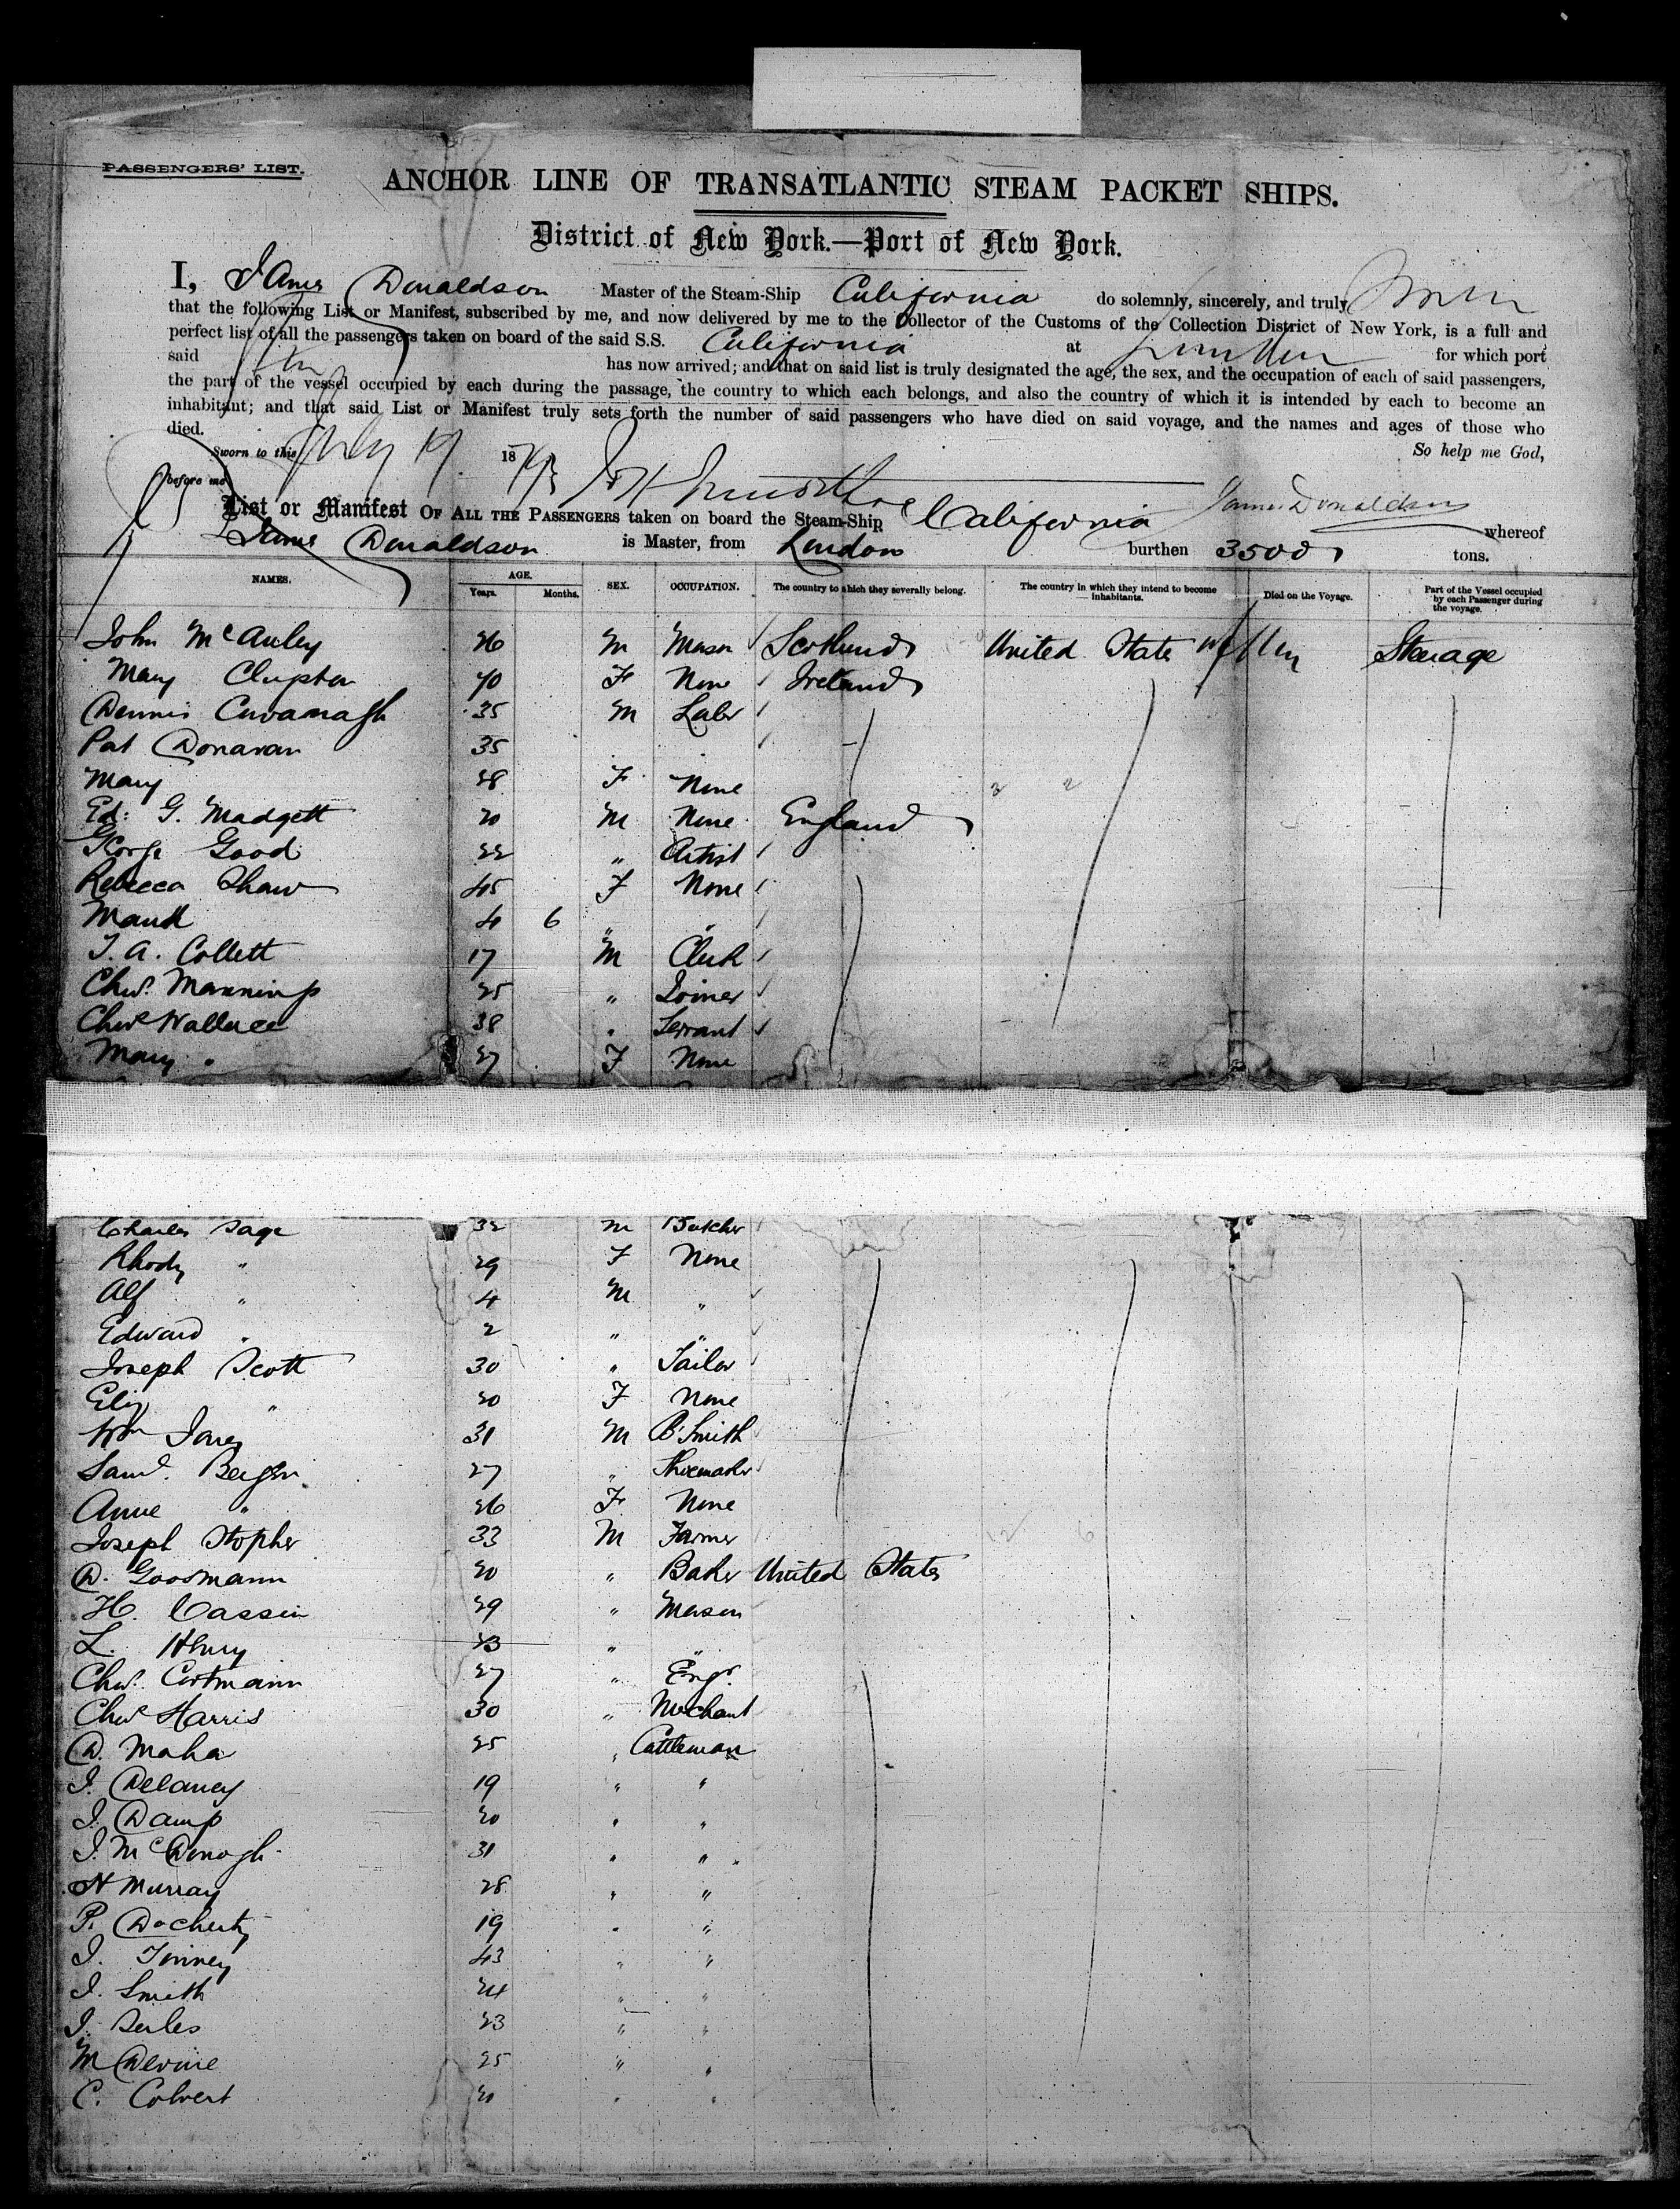 PASSENGERS' LIST.
ANCHOR LINE OF TRANSATLANTIC STEAM PACKET SHIPS.
District of New York.—Port of New York.
I, James Donaldson Master of the Steam-Ship California do solemnly, sincerely, and truly
that the following List or Manifest, subscribed by me, and now delivered by me to the Collector of the Customs of the Collection District of New York, is a full and
perfect list of all the passengers taken on board of the said S.S. California at London for which port
said has now arrived; and that on said list is truly designated the age, the sex, and the occupation of each of said passengers,
the part of the vessel occupied by each during the passage, the country to which each belongs, and also the country of which it is intended by each to become an
inhabitant; and that said List or Manifest truly sets forth the number of said passengers who have died on said voyage, and the names and ages of those who
died.
So help me God,
Sworn to this July 19 18
before me
James Donaldson
List or Manifest OF ALL THE PASSENGERS taken on board the Steam-Ship California whereof
James Donaldson is Master, from London burthen 3500 tons.
NAMES. AGE. Years. Months. SEX. OCCUPATION. The country to which they severally belong. The country in which they intend to become inhabitants. Died on the Voyage. Part of the Vessel occupied by each Passenger during the voyage.
John McAuley 26 M Mason Scotland United States Steerage
Mary Clupton 40 F None Ireland
Dennis Cavanagh 35 M Labr
Pat Donavan 35
Mary 28 F None
Ed: G. Madgett 20 M None England
George Good 22 " Artist
Rebecca Shaw 45 F None
Maud 4 6 " "
T. A. Collett 17 M Clerk
Chas. Manning 25 " Joiner
Chas Wallace 38 " Servant
Mary " 27 F None
Charles Sage 32 M Butcher
Rhody " 29 F None
Alf " 4 M "
Edward " 2 " "
Joseph Scott 30 " Tailor
Eliz " 20 F None
Wm Jones 31 M B.Smith
Saml. 27 " Shoemaker
Anne " 26 F None
Joseph Stopher 33 M Farmer
D. Goosmann 20 " Baker United States
H. Cassin 29 " Mason
L. Henry 23 " "
Chas. Cortmann 27 " Engr.
Chas Harris 30 " Mechant
D. Maha 25 " Cattleman
J. Delaney 19 " "
J. Damp 20 " "
J. McDonogh 31 " "
H Murray 28 " "
P. Docherty 19 " "
J. Finney 43 " "
J. Smith 24 " "
J. Serles 23 " "
M Devine 25 " "
C. Colvert " "